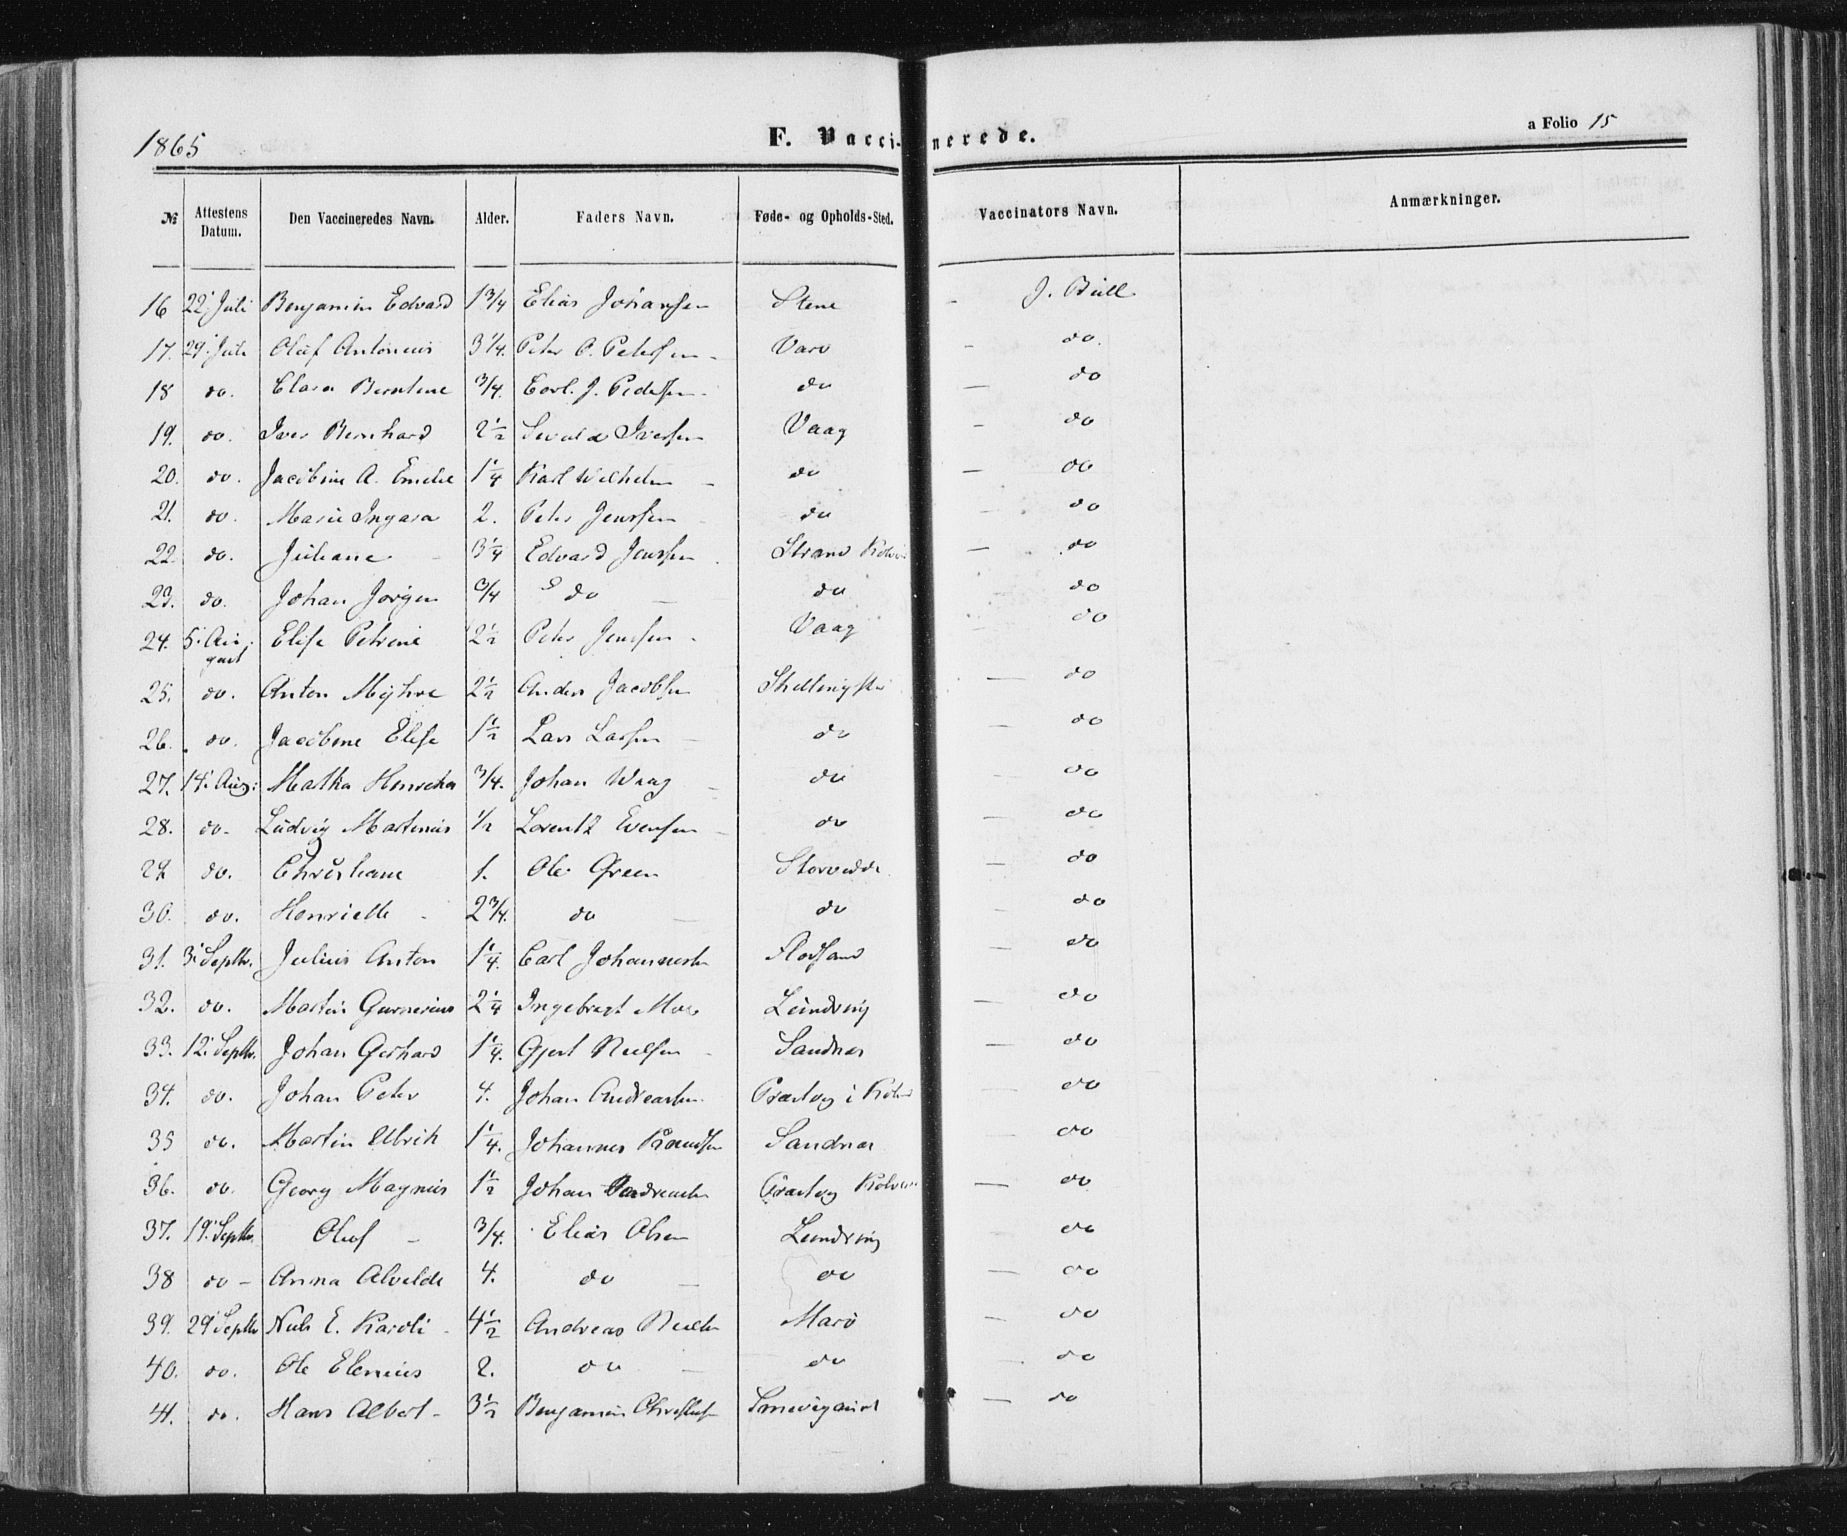 1865 F. Vaccinerede. a Folio 15
№ Attestens Datum. Den Vaccineredes Navn. Alder. Faders Navn. Føde- og Opholds-Sted. Vaccinators Navn. Anmærkninger.
16 22' Juli Benjamin Edvard 1 3/4 Elias Johansen Stene - J. Bull
17. 29' Juli Oluf Antonius 3 1/4. Peter P. Petersen - Varø - do.
18 do. Clara Berntine 3/4. J. Pedersen - do - do
19. do. Iver Bernhard 2 1/2 Sivald Iversen Vaag - do
20. do. Jacobine A. Emelie 1 1/4 Karl Wilhelm - do - do
21. do. Marie Ingara 2. Peter Jenssen - do - do
22 do. Juliane - 3 1/4 Edvard Jenssen Strand - do
23. do. Johan Jørgen 3/4 do - do do
24. 5' August Elise Petrine 2 1/2 Peter Jenssen - Vaag do
25. do. Anton 2 1/2 Anders Jacobsen - do
26. do. Jacobine Elise 1 1/2 Lars Larsen - do - do
27. 14' Aug: Martha 3/4. Johan Waag - do - do
28. do - Ludvig Martinus 1/2 Lorentz Evensen - do - do
29 do. Christiane 1. Ole Green - do
30. do. Henriette - 2 3/4. do - do - do
31. 3' Septbr. Julius Anton 1 1/4. Carl Johannesen - do
32. do. Martin 2 1/4 Ingebregt Moe Lundring - do
33. 12' Septbr. Johan Gerhard 1 1/4. Gjert Nielsen - Sandnes - do
34. do. Johan Peter 4. Johan Andreassen - do
35 do. Martin Ulrik 1 1/4. Johannes Knudsen Sandnes - do
36. do. Georg Magnus 1 1/2 Johan Andreassen - do
37. 19' Septbr. Oluf - 3/4. Elias Olsen Lundring - do
38 do - Anna Alvilde 4. do - do - do
39. 29' Septbr Nils E. Karoli - 4 1/2 Andreas Nielsen Marø - do
40. do. Ole Elenius 2. do - do - do
41. do. Hans Albert - 3 1/2 Benjamin - do